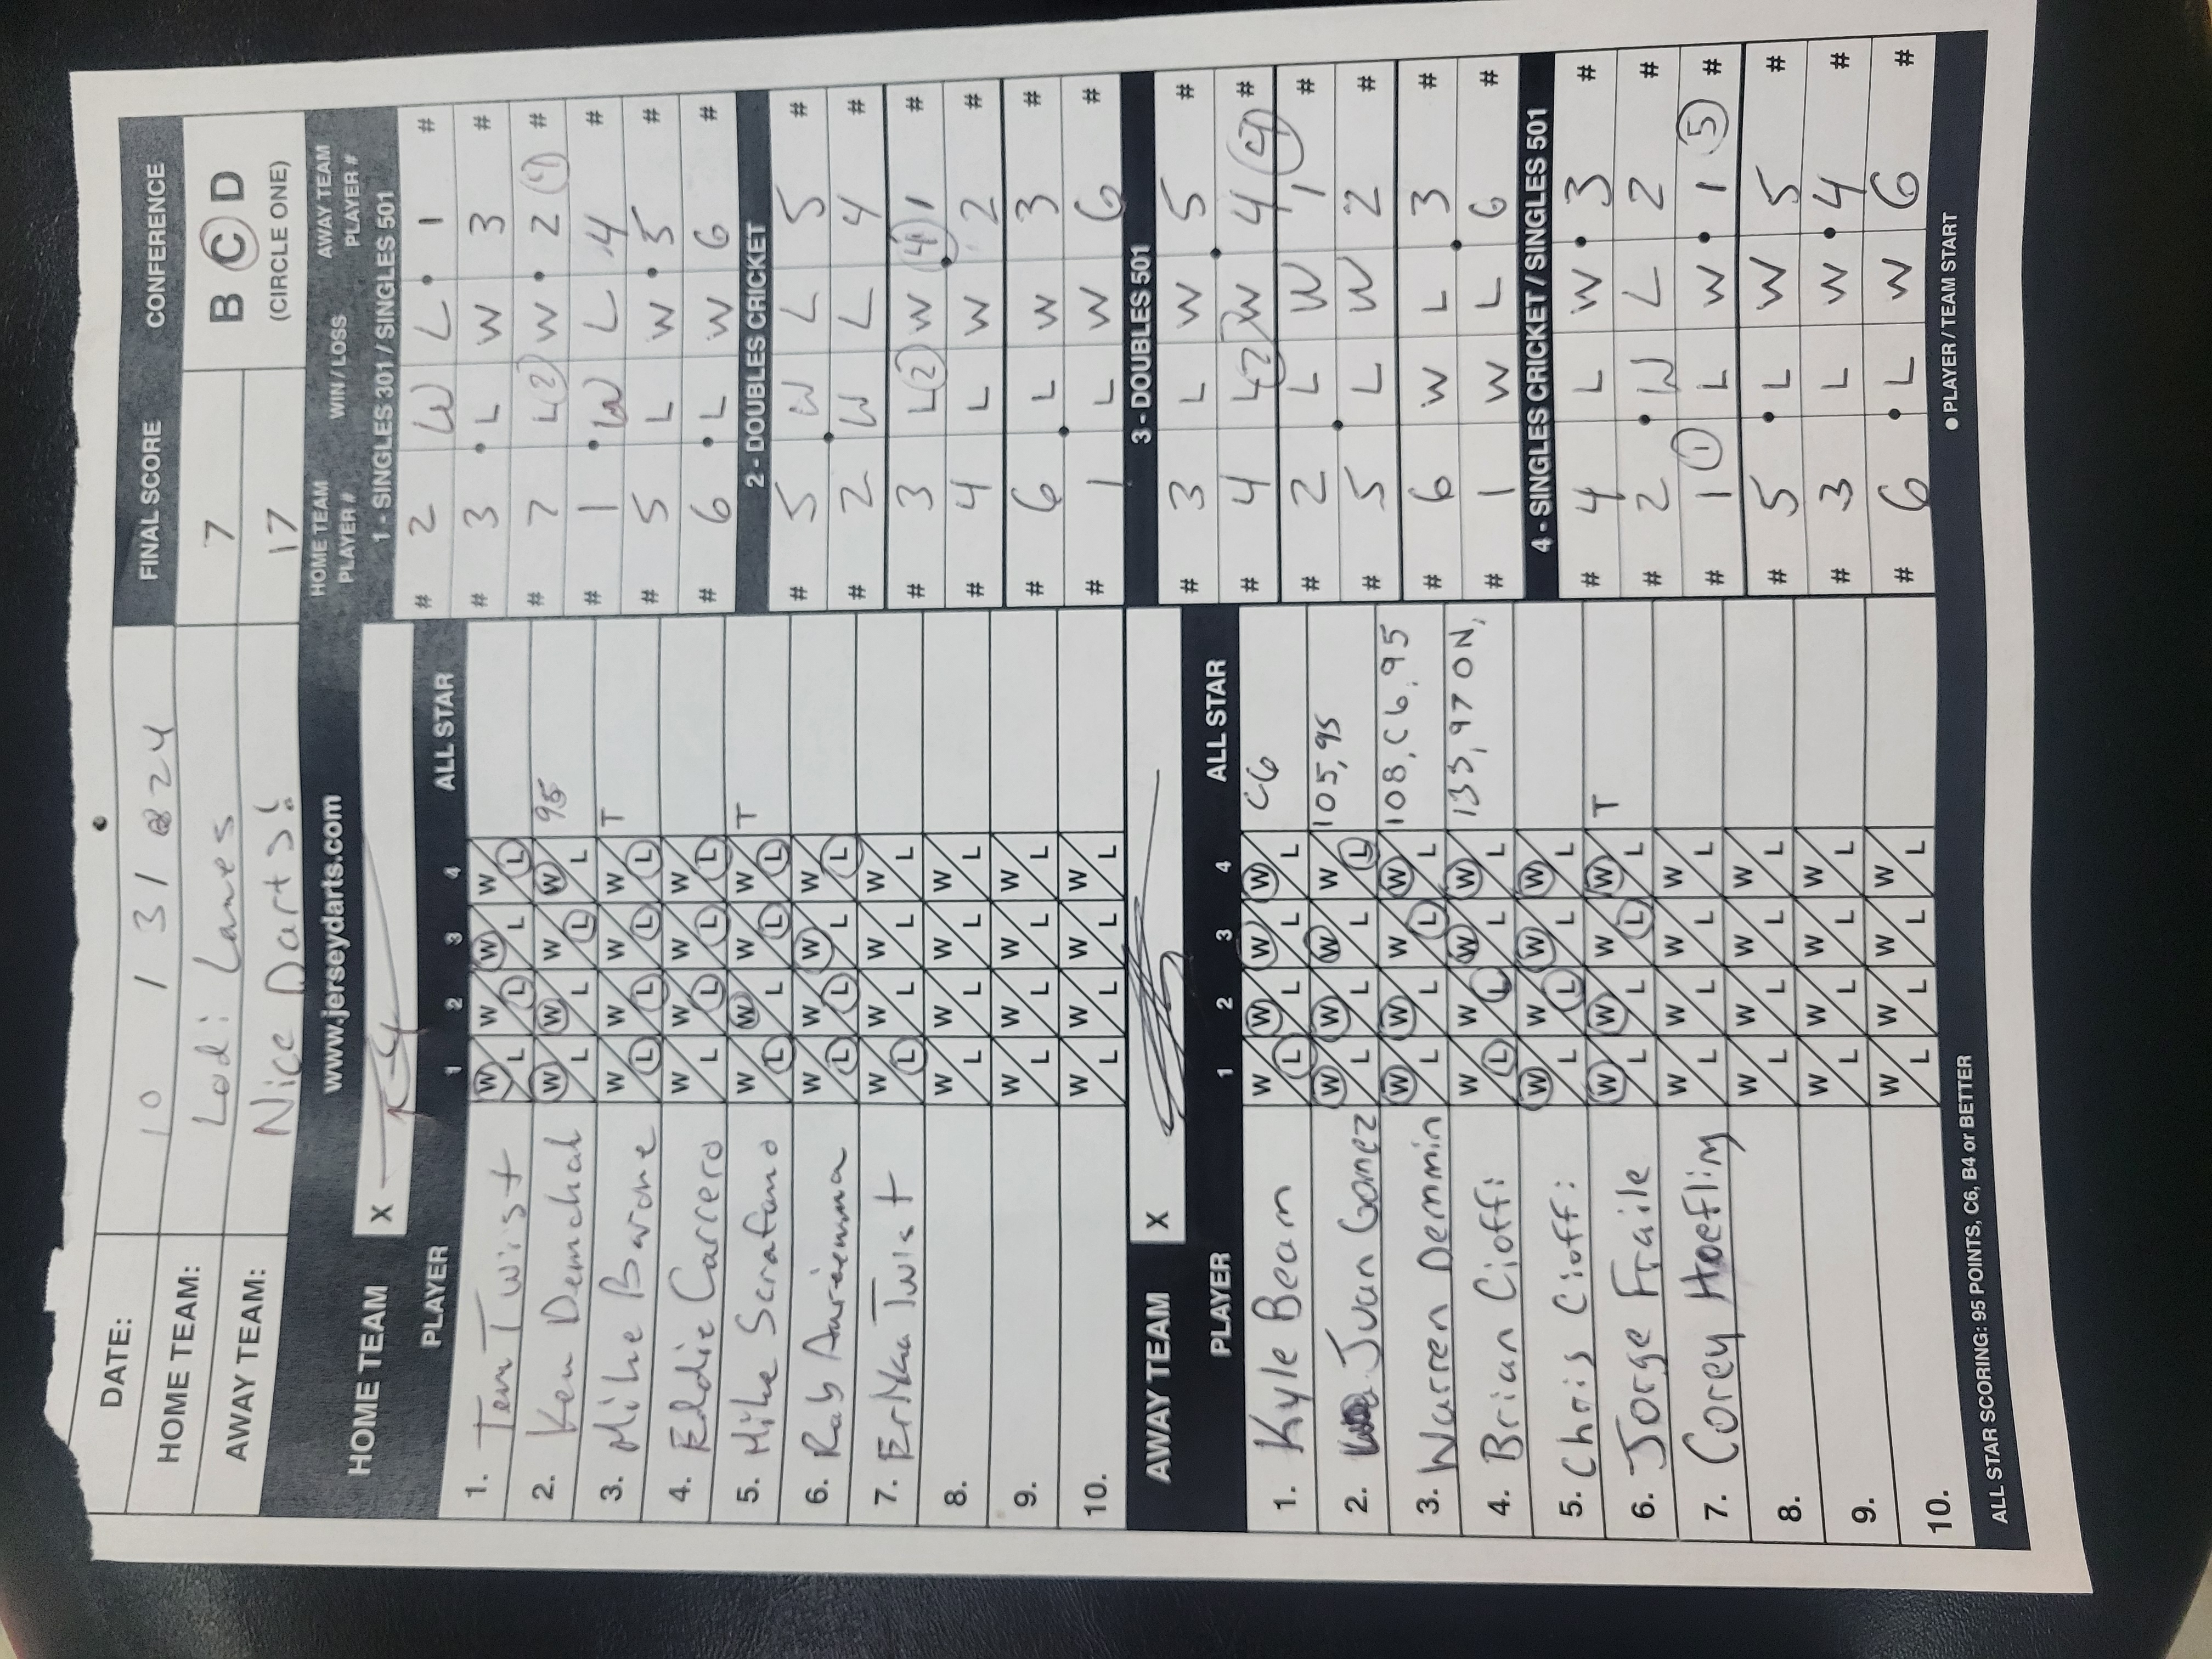 DATE: 10 / 31 @ 24
FINAL SCORE CONFERENCE
HOME TEAM: Lodi Lanes 7
B C D
AWAY TEAM: Nice Darts! 17
(CIRCLE ONE)
www.jerseydarts.com
HOME TEAM X
PLAYER 1 2 3 4 ALL STAR
1. Twist W L W L W L W L
2. Ken Demchak W L W L W L W L 95
3. Mike Barone W L W L W L W L T
4. Eddie Carrero W L W L W L W L
5. Mike Scrafano W L W L W L W L T
6. Rob Auriemma W L W L W L W L
7. Erika Twist W L W L W L W L
8. W L W L W L W L
9. W L W L W L W L
10. W L W L W L W L
AWAY TEAM X
PLAYER 1 2 3 4 ALL STAR
1. Kyle Beam W L W L W L W L C6
2. Juan Gomez W L W L W L W L 105, 95
3. Warren Demmin W L W L W L W L 108, C6, 95
4. Brian Cioffi W L W L W L W L 133, 97 ON,
5. Chris Cioffi W L W L W L W L
6. Jorge Fraile W L W L W L W L T
7. Corey Hoefling W L W L W L W L
8. W L W L W L W L
9. W L W L W L W L
10. W L W L W L W L
ALL STAR SCORING: 95 POINTS, C6, B4 or BETTER
HOME TEAM PLAYER # WIN / LOSS AWAY TEAM PLAYER #
1 - SINGLES 301 / SINGLES 501
# 2 W L 1 #
# 3 L W 3 #
# 7 L 2 W 2 #
# 1 W L 4 #
# 5 L W 5 #
# 6 L W 6 #
2 - DOUBLES CRICKET
# 5 W L 5 #
# 2 W L 4 #
# 3 L 2 W 4 1 #
# 4 L W 2 #
# 6 L W 3 #
# 1 L W 6 #
3 - DOUBLES 501
# 3 L W 5 #
# 4 L 2 W 4 4 #
# 2 L W 1 #
# 5 L W 2 #
# 6 W L 3 #
# 1 W L 6 #
4 - SINGLES CRICKET / SINGLES 501
# 4 L W 3 #
# 2 W L 2 #
# 1 1 L W 1 5 #
# 5 L W 5 #
# 3 L W 4 #
# 6 L W 6 #
● PLAYER / TEAM START